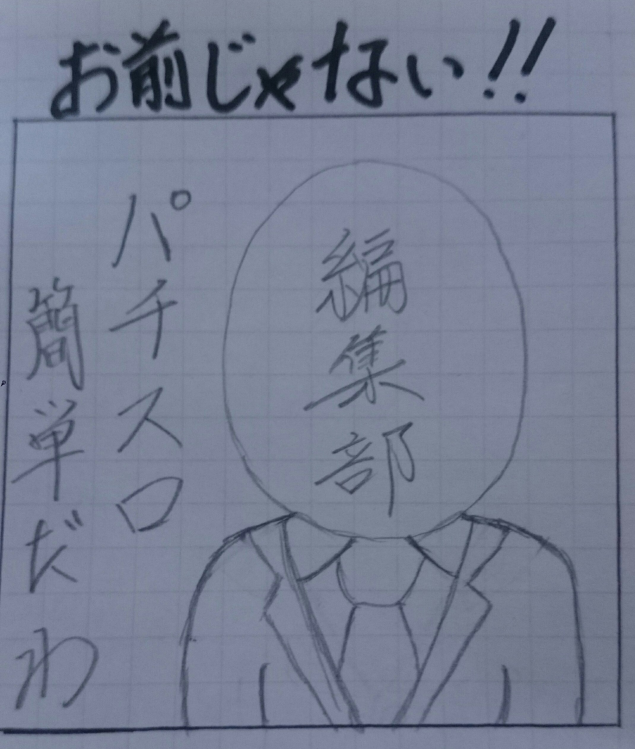 お前じゃない!!
編集部
パチスロ
簡単だわ